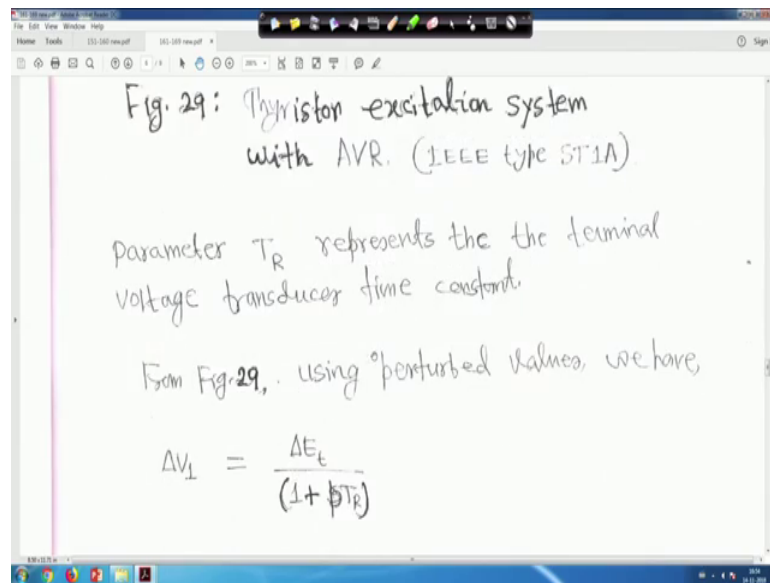 161-169 new.pdf - Adobe Acrobat Reader DC
File Edit View Window Help
Home Tools 151-160 new.pdf 161-169 new.pdf × Sign
Fig. 29: Thyristor excitation system
with AVR. (IEEE type ST1A)
parameter T_R represents the the terminal
voltage transducer time constant.
From Fig. 29, using perturbed values, we have,
ΔV₁ = ΔE_t / (1 + pT_R)